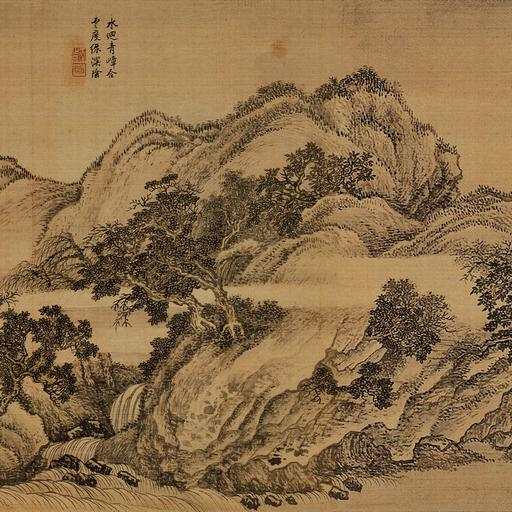 水迴青嶂合
雲度綠溪陰